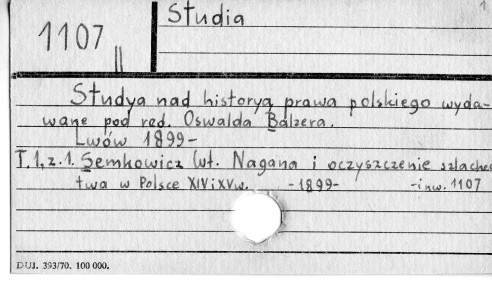 1107
Studia
1
Studya nad historyą prawa polskiego wyda-
wane pod red. Oswalda Balzera.
Lwów 1899-
T.1, z.1. Semkowicz Wł. Nagana i oczyszczenie szlachec
twa w Polsce XIV i XV w. -1899- -inw. 1107
DUJ. 393/70. 100 000.